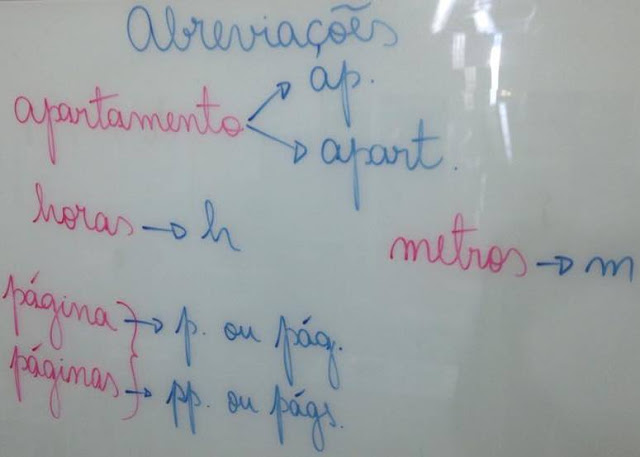 Abreviações
apartamento → ap.
→ apart.
horas → h
metros → m
página } → p. ou pág.
páginas } → pp. ou págs.